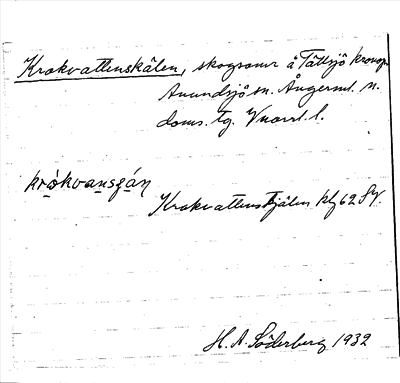 Krokvattenskälen, skogsomr å Tällsjö kronop.
Anundsjö sn. Ångerml. n.
doms. tg. Vnorrl. l.
Krokvattenstjälen klf 62 Sv.
H. A. Söderberg 1932